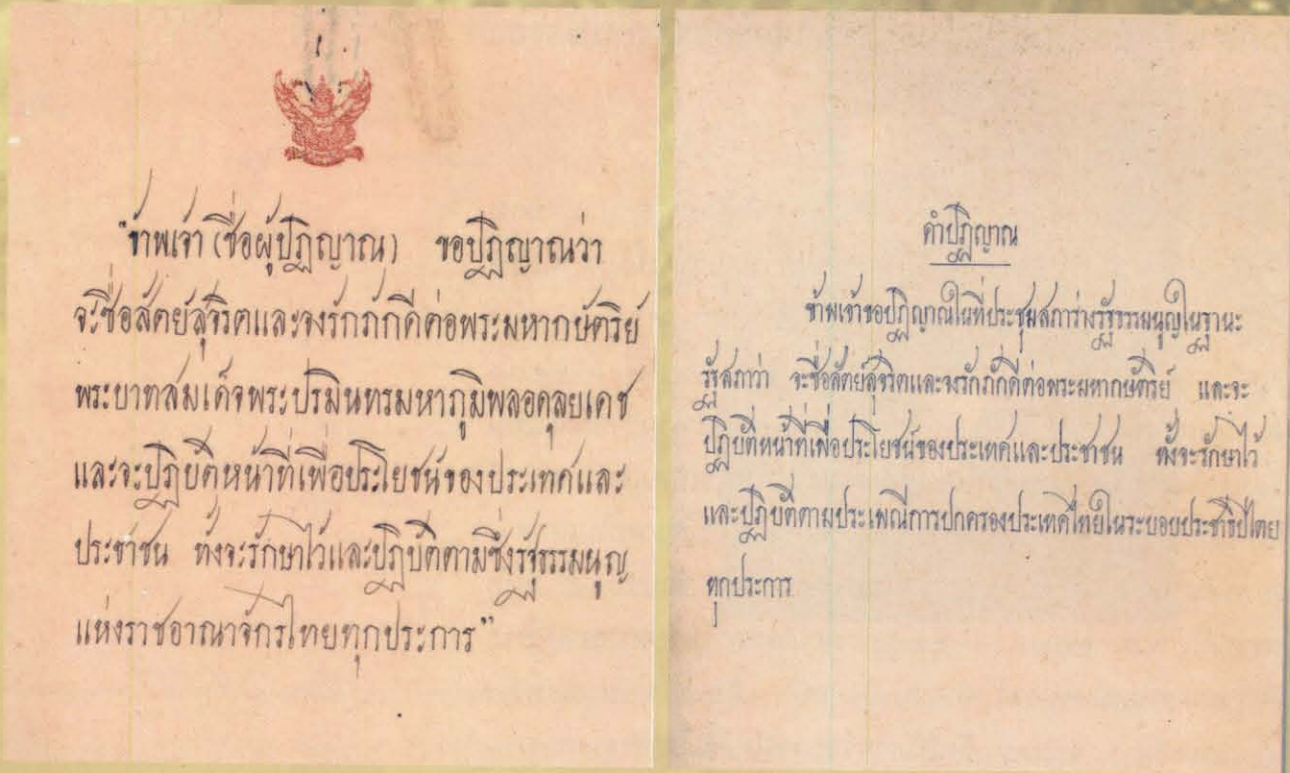 "ข้าพเจ้า (ชื่อผู้ปฏิญาณ) ขอปฏิญาณว่า
จะซื่อสัตย์สุจริตและจงรักภักดีต่อพระมหากษัตริย์
พระบาทสมเด็จพระปรมินทรมหาภูมิพลอดุลยเดช
และจะปฏิบัติหน้าที่เพื่อประโยชน์ของประเทศและ
ประชาชน ทั้งจะรักษาไว้และปฏิบัติตามซึ่งรัฐธรรมนูญ
แห่งราชอาณาจักรไทยทุกประการ"
คำปฏิญาณ
ข้าพเจ้าขอปฏิญาณในที่ประชุมสภาร่างรัฐธรรมนูญในฐานะ
รัฐสภาว่า จะซื่อสัตย์สุจริตและจงรักภักดีต่อพระมหากษัตริย์ และจะ
ปฏิบัติหน้าที่เพื่อประโยชน์ของประเทศและประชาชน ทั้งจะรักษาไว้
และปฏิบัติตามประเพณีการปกครองประเทศไทยในระบอบประชาธิปไตย
ทุกประการ